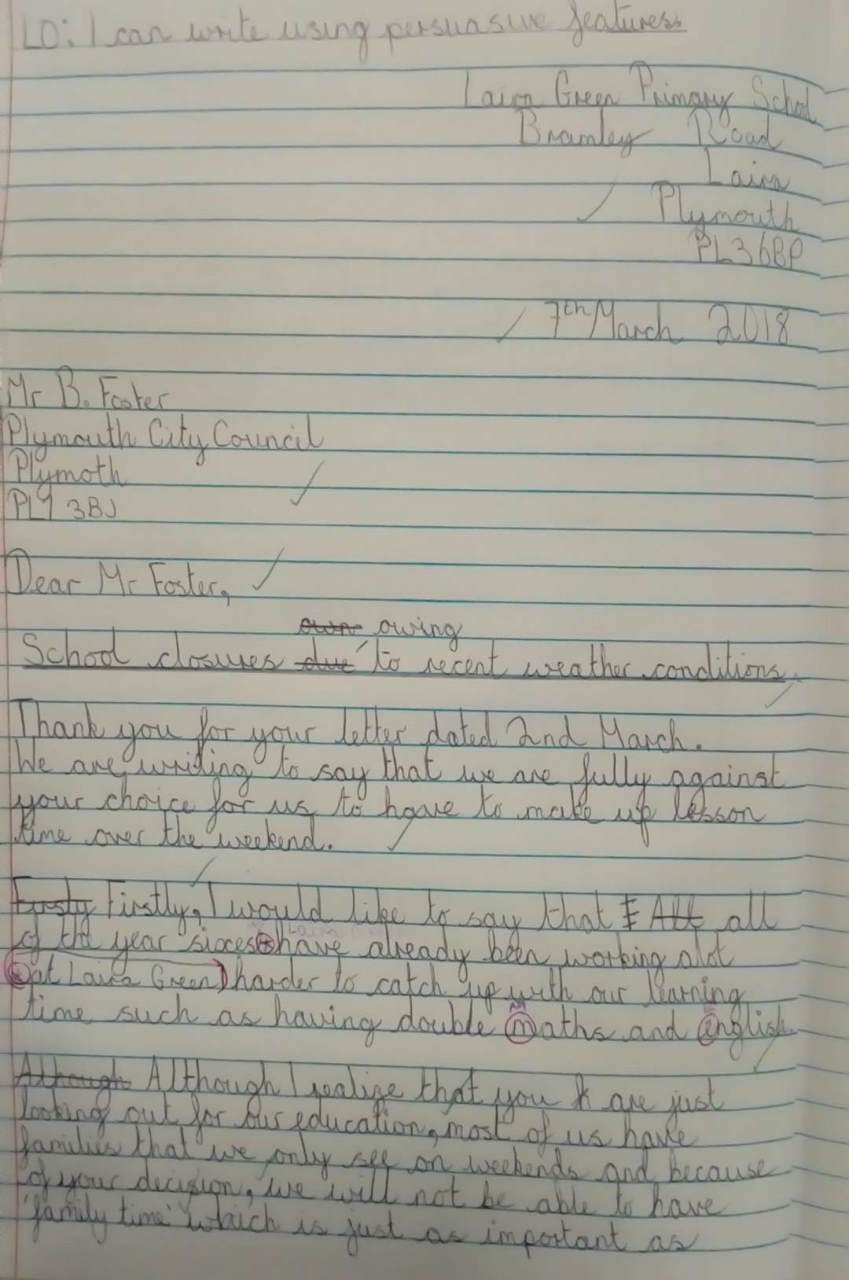 LO: I can write using persuasive features.
Laira Green Primary School
Bramley Road
Laira
Plymouth
PL36BP
7th March 2018
Mr B. Foster
Plymouth City Council
Plymoth
PL1 3BJ
Dear Mr Foster,
own owing
School closures due to recent weather conditions.
Thank you for your letter dated 2nd March.
We are writing to say that we are fully against
your choice for us to have to make up lesson
time over the weekend.
Firsty Firstly, I would like to say that I All all
of the year sixes have already been working alot
(at Laira Green) harder to catch up with our learning
time such as having double maths and english.
Although Although I realize that you are just
looking out for our education, most of us have
families that we only see on weekends and because
of your decision, we will not be able to have
'family time' which is just as important as